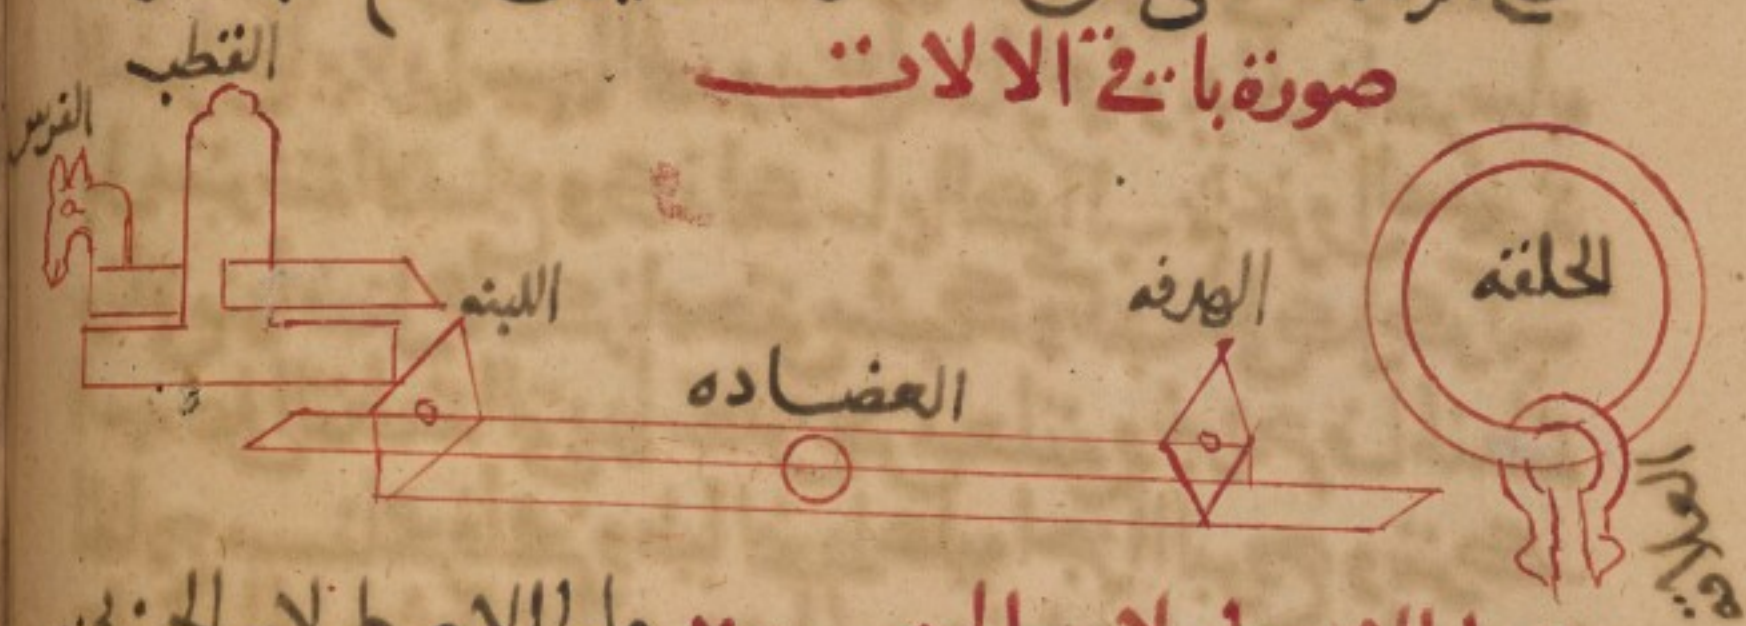 صورة باقي الالات
القطب
الفرس
الحلقه
الهدفه
اللبنه
العضاده